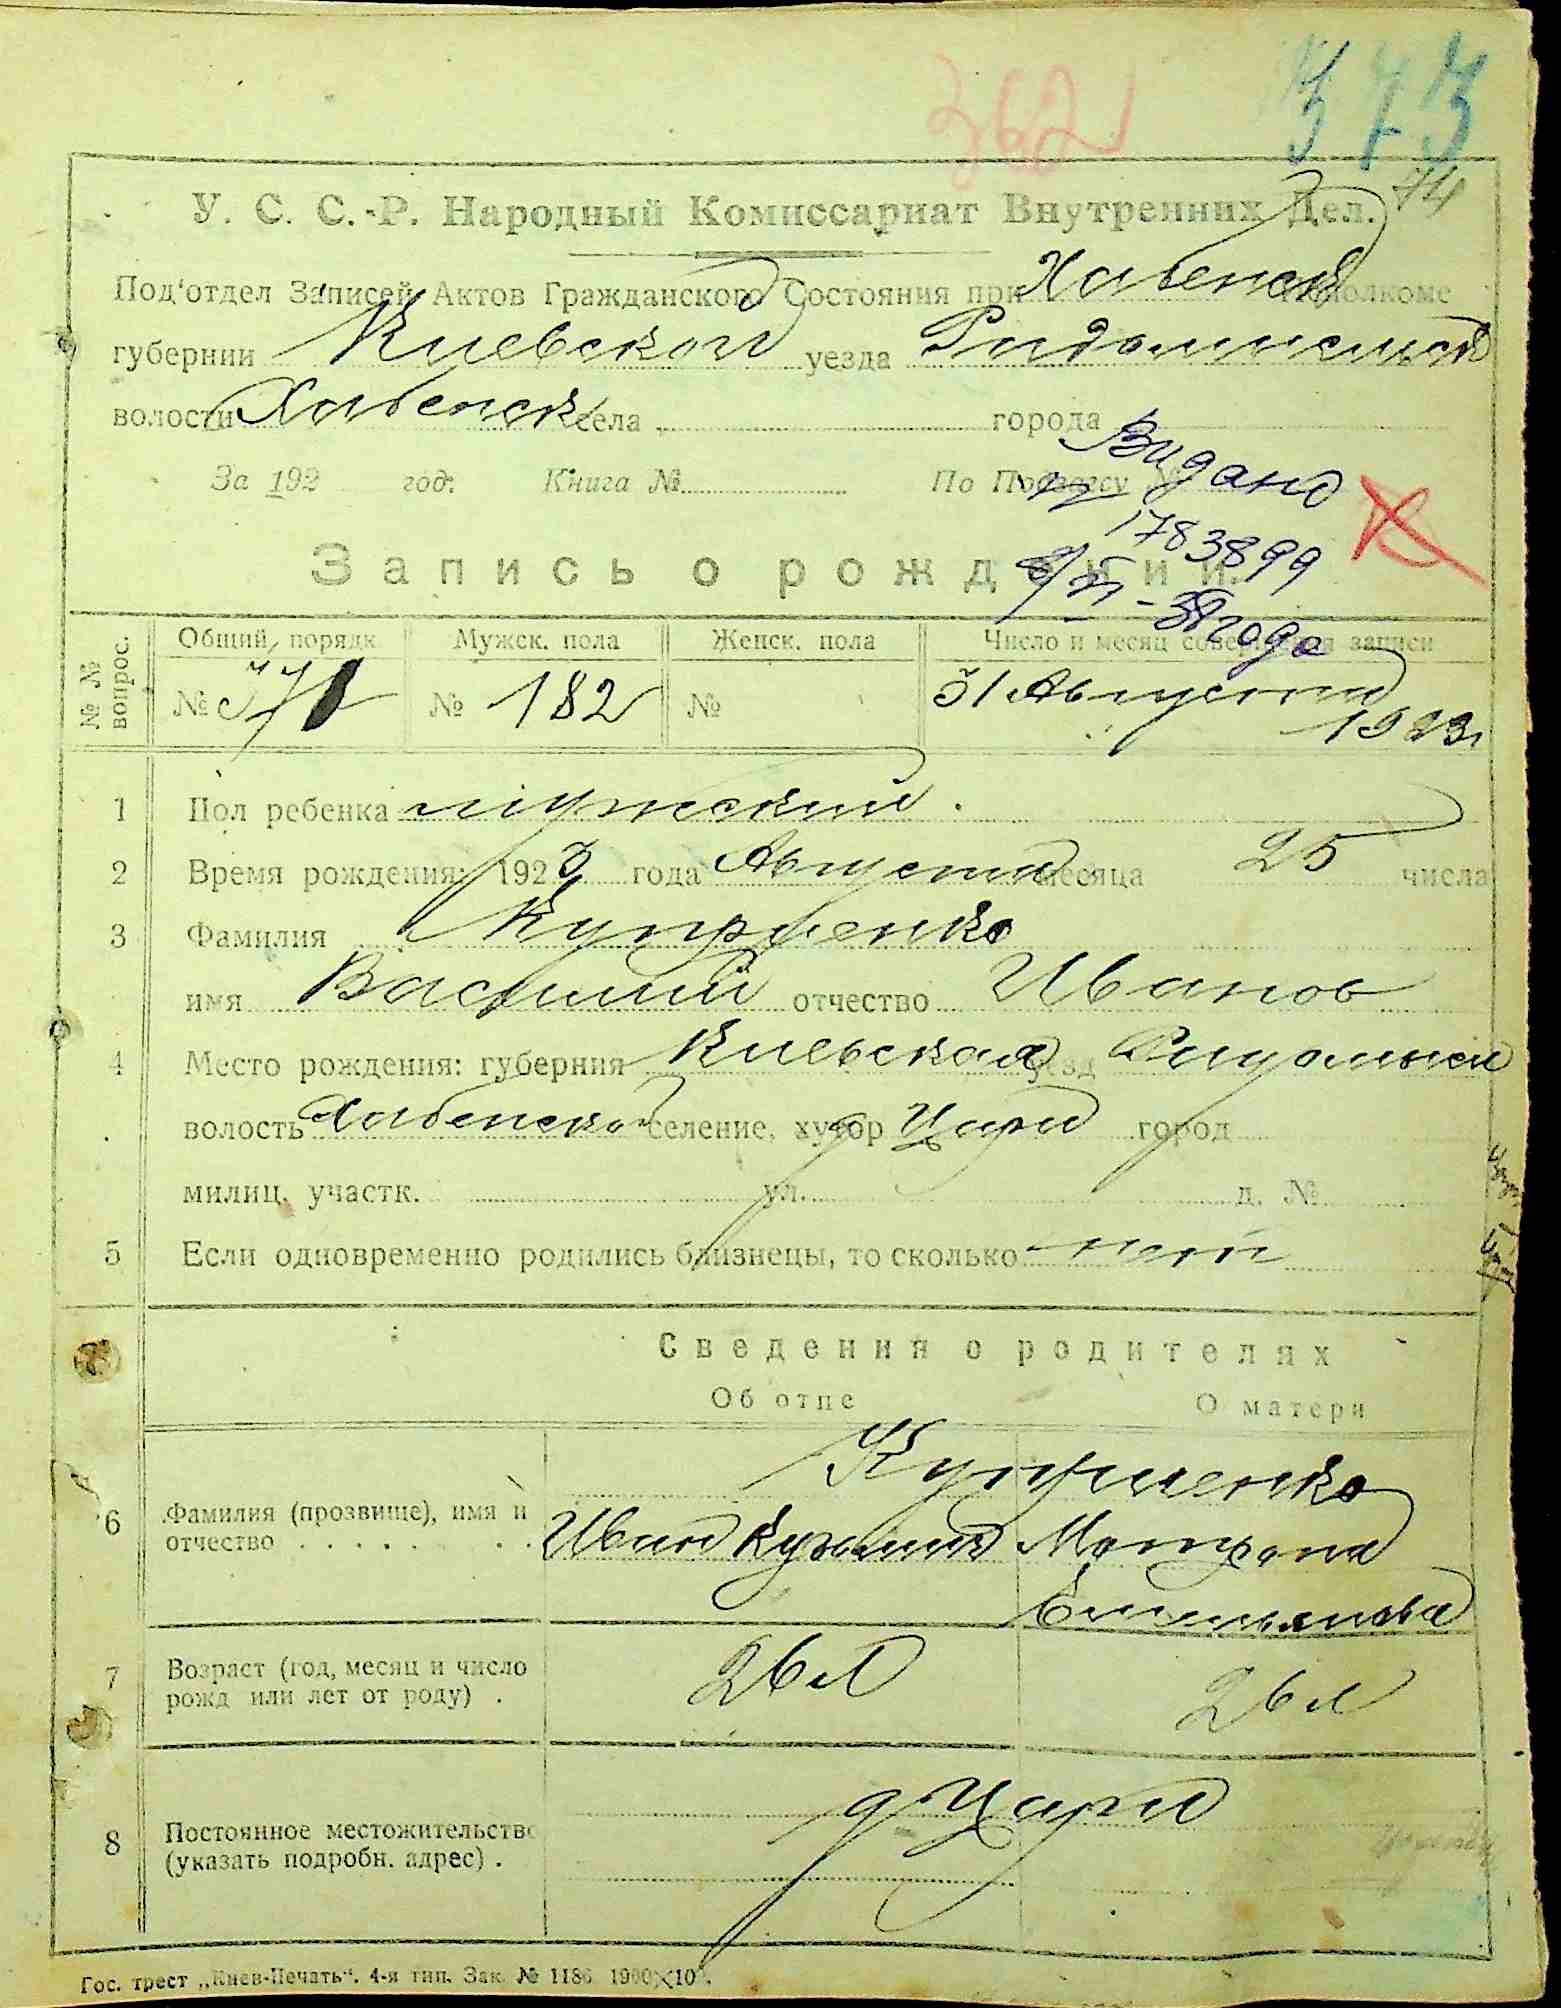 362
373
74
У. С. С.-Р. Народный Комиссариат Внутренних Дел.
Под'отдел Записей Актов Гражданского Состояния при Хабенск Исполкоме
губернии Киевской уезда Радомысльск
волости Хабенск села города
За 192 год. Книга № По Подзагсу №
Видано
1783899
Запись о рождении.
№№ вопрос. Общий порядк. Мужск. пола Женск. пола Число и месяц совершения записи
№ 371 № 182 № 31 Августа
1923
1 Пол ребенка мужский.
2 Время рождения: 1923 года Августа месяца 25 числа
3 Фамилия Куприенко
имя Василий отчество Иванов
4 Место рождения: губерния Киевская уезд Радомысл
волость Хабенской селение, хутор д Цари город
милиц. участк. ул. д. №
5 Если одновременно родились близнецы, то сколько нет
Сведения о родителях
Об отце О матери
Куприенко
6 Фамилия (прозвище), имя и отчество Иван Кузьмин Мотрона
Емельянова
7 Возраст (год, месяц и число рожд или лет от роду) 26 л 26 л
8 Постоянное местожительство (указать подробн. адрес) д Цари
Гос. трест „Киев-Печать“. 4-я тип. Зак. № 1186 1900×10